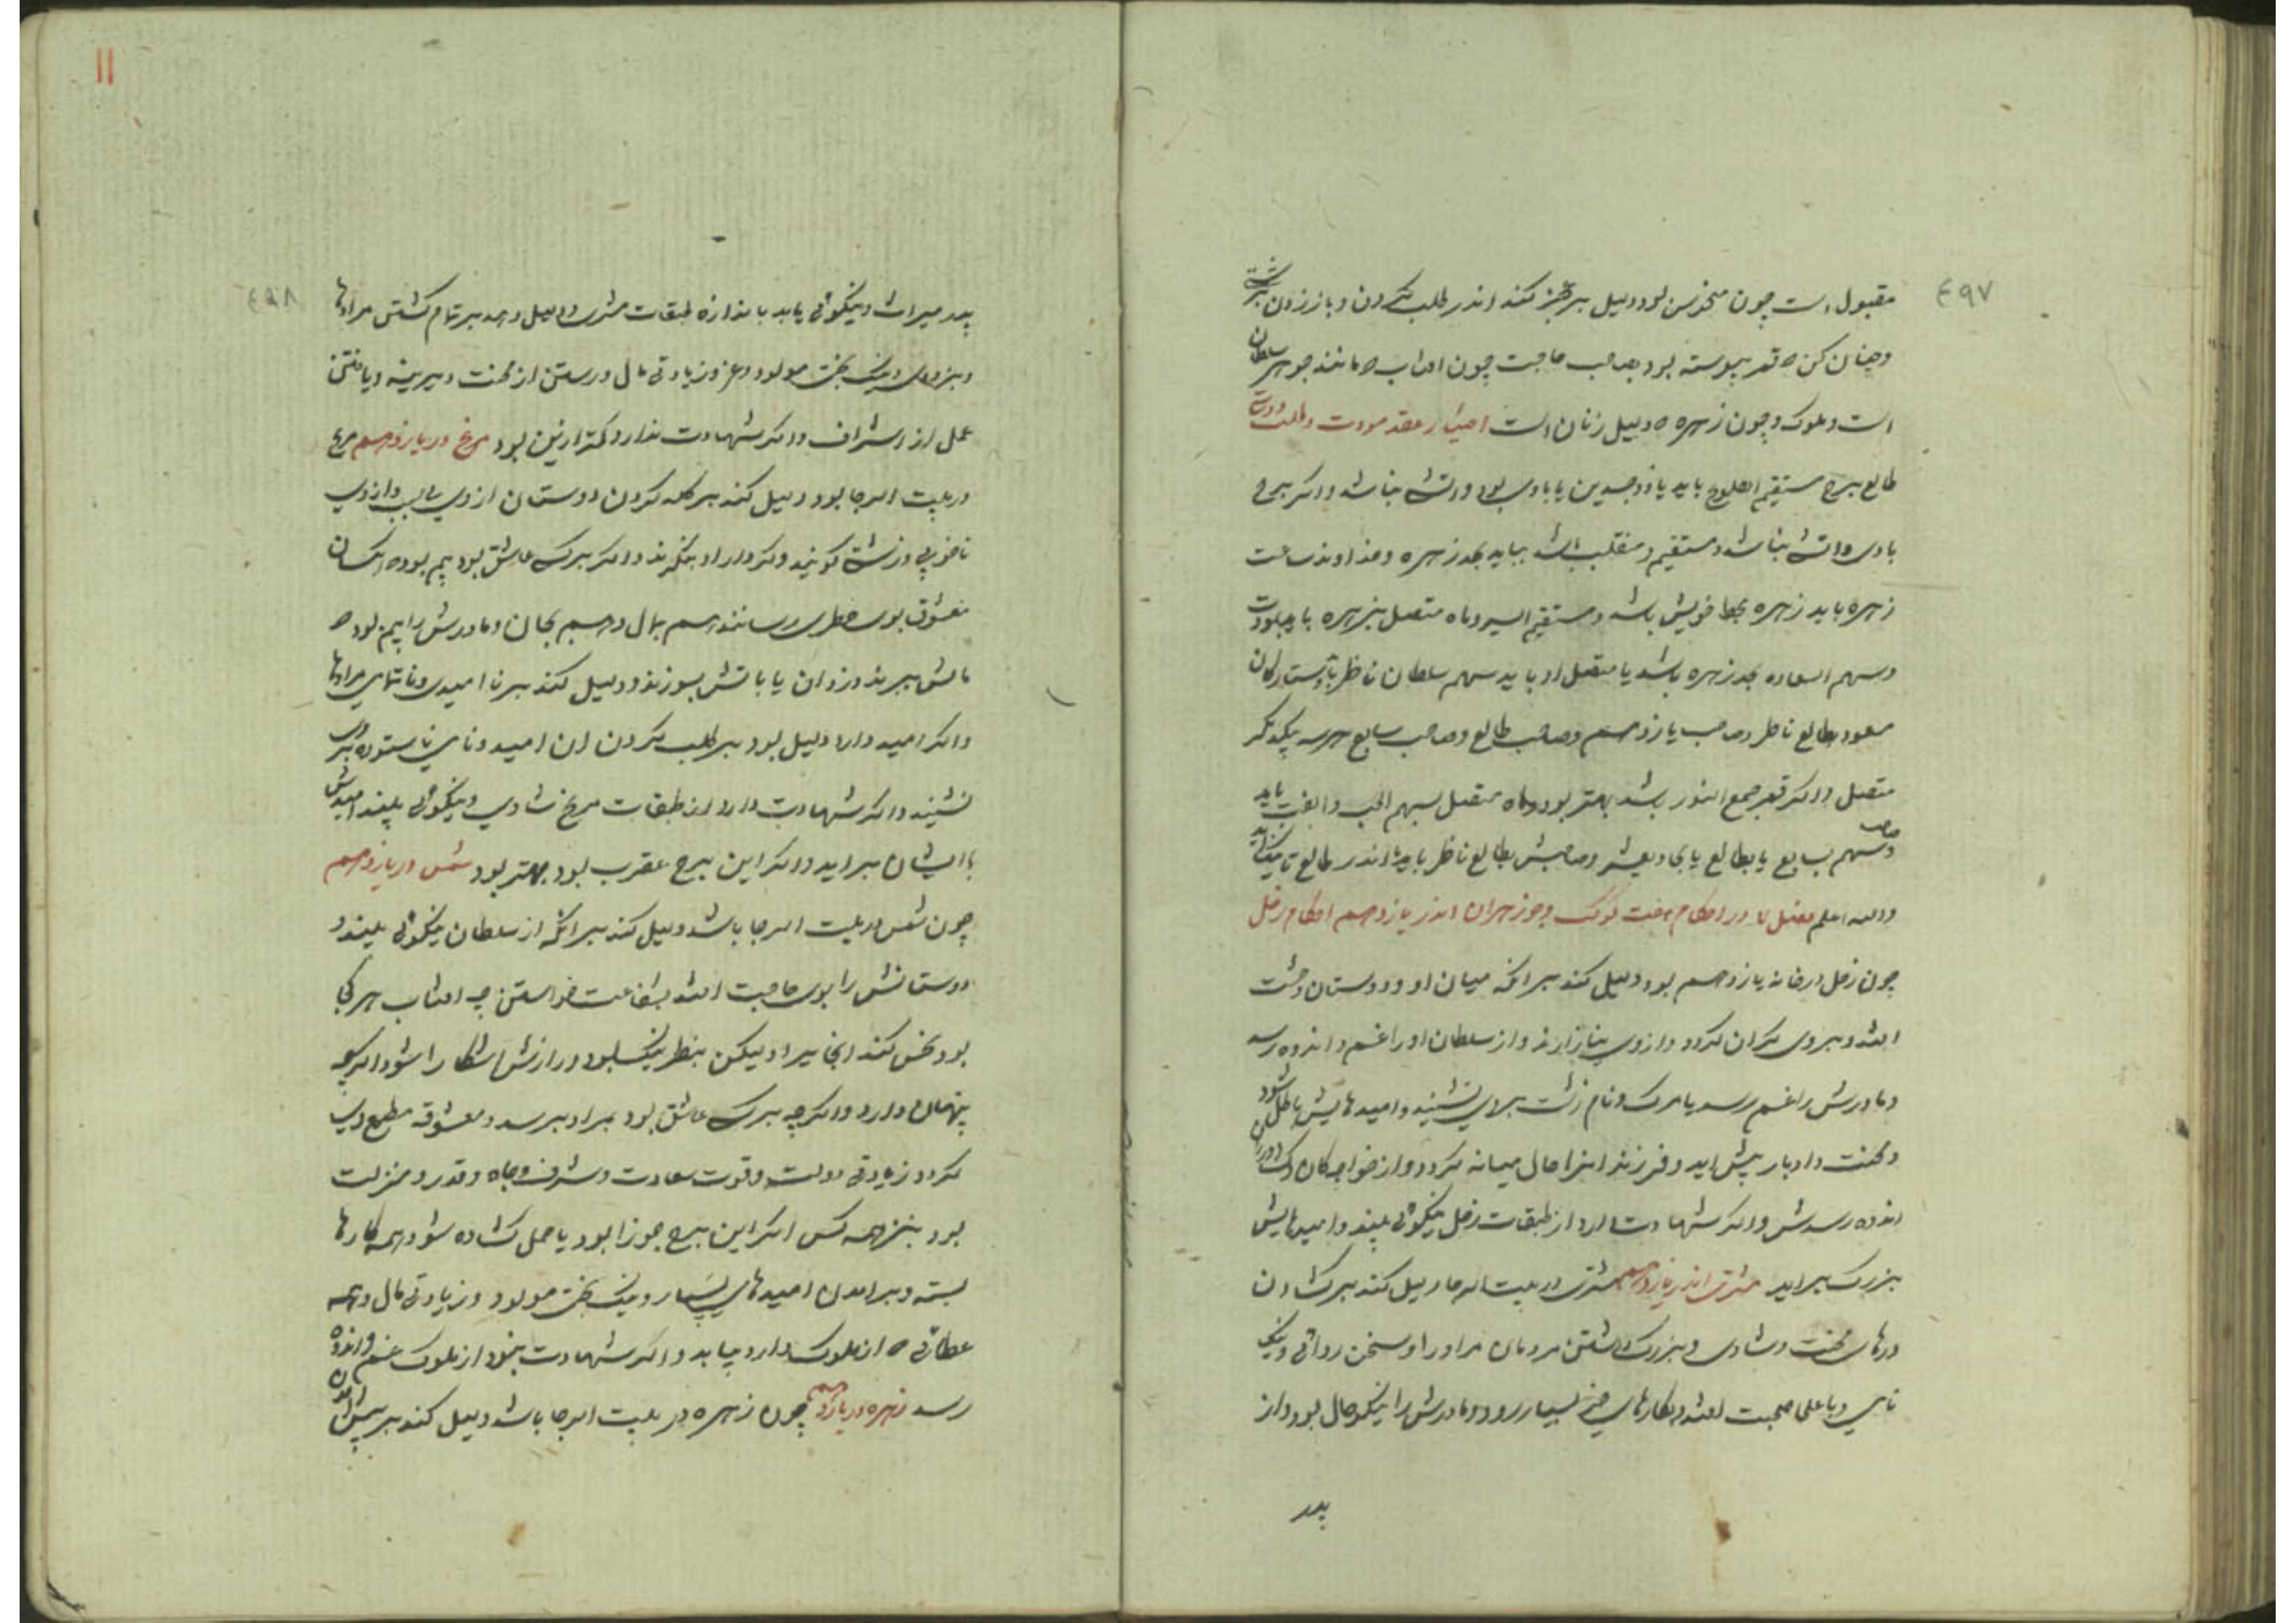 ٤٩٧
مقبول است چون منحوس بود دلیل بر عجز کند اندر طلب کردن و باز زدن
و چنان کن که قمر پیوسته بود بصاحب حاجت چون افتاب که مانند جوهر سلطان
است و ملوک و چون زهره که دلیل زنان است اختیار عقد مودت و طلب دوستی
طالع برج مستقیم الطلوع باید یا ذو جسدین یا بادی بود و اتشی نباشد و اکر برج
بادی و اتشی نباشد و مستقیم و منقلب باشد بباید بحد زهره و خداوند ساعت
زهره باید زهره بحظ خویش باشد و مستقیم السیر و ماه متصل بزهره باید
و سهم السعاده بحد زهره باشد یا متصل او باید سهم سلطان ناظر ستارکان
سعود بطالع ناظر و صاحب یازدهم و صاحب طالع و صاحب سابع هر سه بیکدیکر
متصل و اکر قمر جمع النور باشد بهتر بود و ماه متصل بسهم الحب و الفت باید
و سهم بسابع یا بطالع یا بحادیعشر و صاحبش بطالع ناظر باید یا اندر طالع
والله اعلم فصل در احکام هفت کوکب و جوزهران اندر یازدهم احکام زحل
چون زحل در خانه یازدهم بود دلیل کند بر انکه میان او و دوستان وحشت
افتد و بروی کران کردد و از وی بیازارند و از سلطان او را غم و اندوه رسد
و مادرش را غم رسد یا مرک و نام زشت بروی نشیند و امیدهایش باطل شود
و محنت و ادبار پیش اید و فرزند انرا حال میانه کردد و از خواجه کان
اندوه رسدش و اکر شهادت دارد از طبقات زحل نیکوئی بیند و امیدهایش
بزرک براید مشتری اندر یازدهم مشتری در بیت الرجا دلیل کند بر کشادن
درهای محنت و شادی و بزرک داشتن مردمان مر او را و سخن روائی و نیک
نامی و با علی صحبت افتد و بکارهای خیر بسیار رود و مادرش را نیکو حال بود و از
پدر
١١
٤٩٨
پدر میراث و نیکوئی یابد باندازه طبقات مشتری و دلیل دهد بر تمام کشتن مرادها
و بزرکی و نیک بختی مولود و عز و زیادتی مال و رستن از محنت دیرینه و یافتن
عمل از اشراف و اکر شهادت ندارد کمتر ازین بود مریخ در یازدهم مریخ
در بیت الرجا بود دلیل کند بر کله کردن دوستان از وی بی سبب و از وی
ناخوبی و زشتی کویند و کردار او بنکرند و اکر بر کسی عاشق بود بیم بود که کسان
معشوق بوی خطری رسانند هم بمال و هم بجان و مادرش را بیم بود که
مالش ببرند دزدان یا باتش بسوزند و دلیل کند بر نا امیدی و ناتمامی مرادها
و اکر امید دارد دلیل بود بر طلب کردن ان امید و نامی ناستوده بر وی
نشیند و اکر شهادت دارد از طبقات مریخ شادی و نیکوئی بیند امیدش
با ایشان براید و اکر این برج عقرب بود بهتر بود شمس در یازدهم
چون شمس در بیت الرجا باشد دلیل کند بر انکه از سلطان نیکوئی بیند و
دوستانش را بوی حاجت افتد بشفاعت خواستن چه افتاب هر کجا
بود نحس کند انجا یرا و لیکن بنظر نیک بود و رازش اشکارا شود اکر چه
پنهان دارد و اکر چه بر کسی عاشق بود بمراد برسد و معشوقه مطیع وی
کردد و زیادتی دولت و قوت سعادت و شرف و جاه و قدر و منزلت
بود بنزد همه کس اکر این برج جوزا بود یا حمل کشاده شود همه کارها
بسته و بر امدن امیدهای بسیار و نیک بختی مولود و زیادتی مال و همه
عطائی که از ملوک دارد بیابد و اکر شهادت نبود از ملوک غم و اندوه
رسد زهره در یازدهم چون زهره در بیت الرجا باشد دلیل کند بر